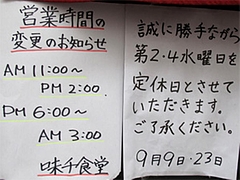 営業時間の
変更のお知らせ
AM 11:00~
PM 2:00
PM 6:00~
AM 3:00
味千食堂
誠に勝手ながら
第2・4水曜日を
定休日とさせて
いただきます。
ご了承ください。
9月9日・23日